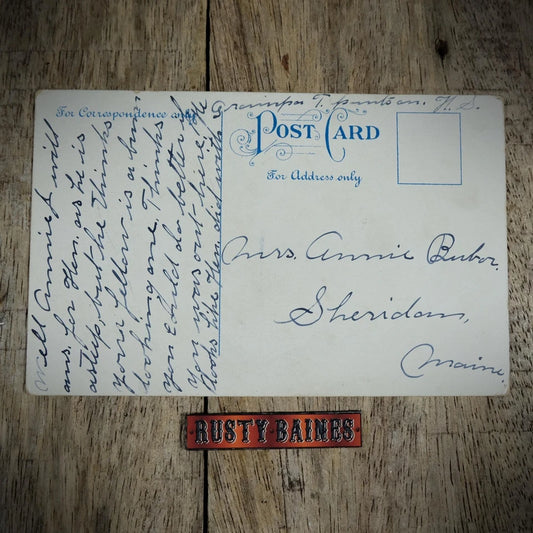 For Correspondence only
POST CARD
For Address only
Well Annie I will
ans. for Hen. as he is
asleep, but he thinks
your fellow is a bum
looking one. Thinks
you could do better if
you was out here. He
looks like Hen. did with
Grandpa T. pants on.
Mrs. Annie Buber
Sheridan,
Maine.
RUSTY BAINES